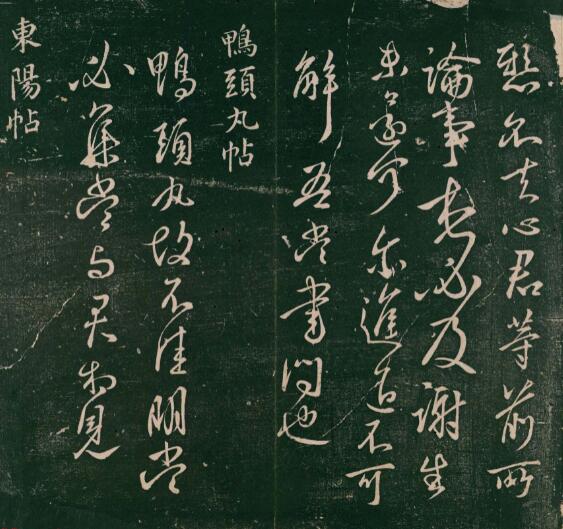 懸不去心君等前所
論事想必及謝生
未還何尓進退不可
解吾當書問也
鴨頭丸帖
鴨頭丸故不佳明當
必集當與君相見
東陽帖